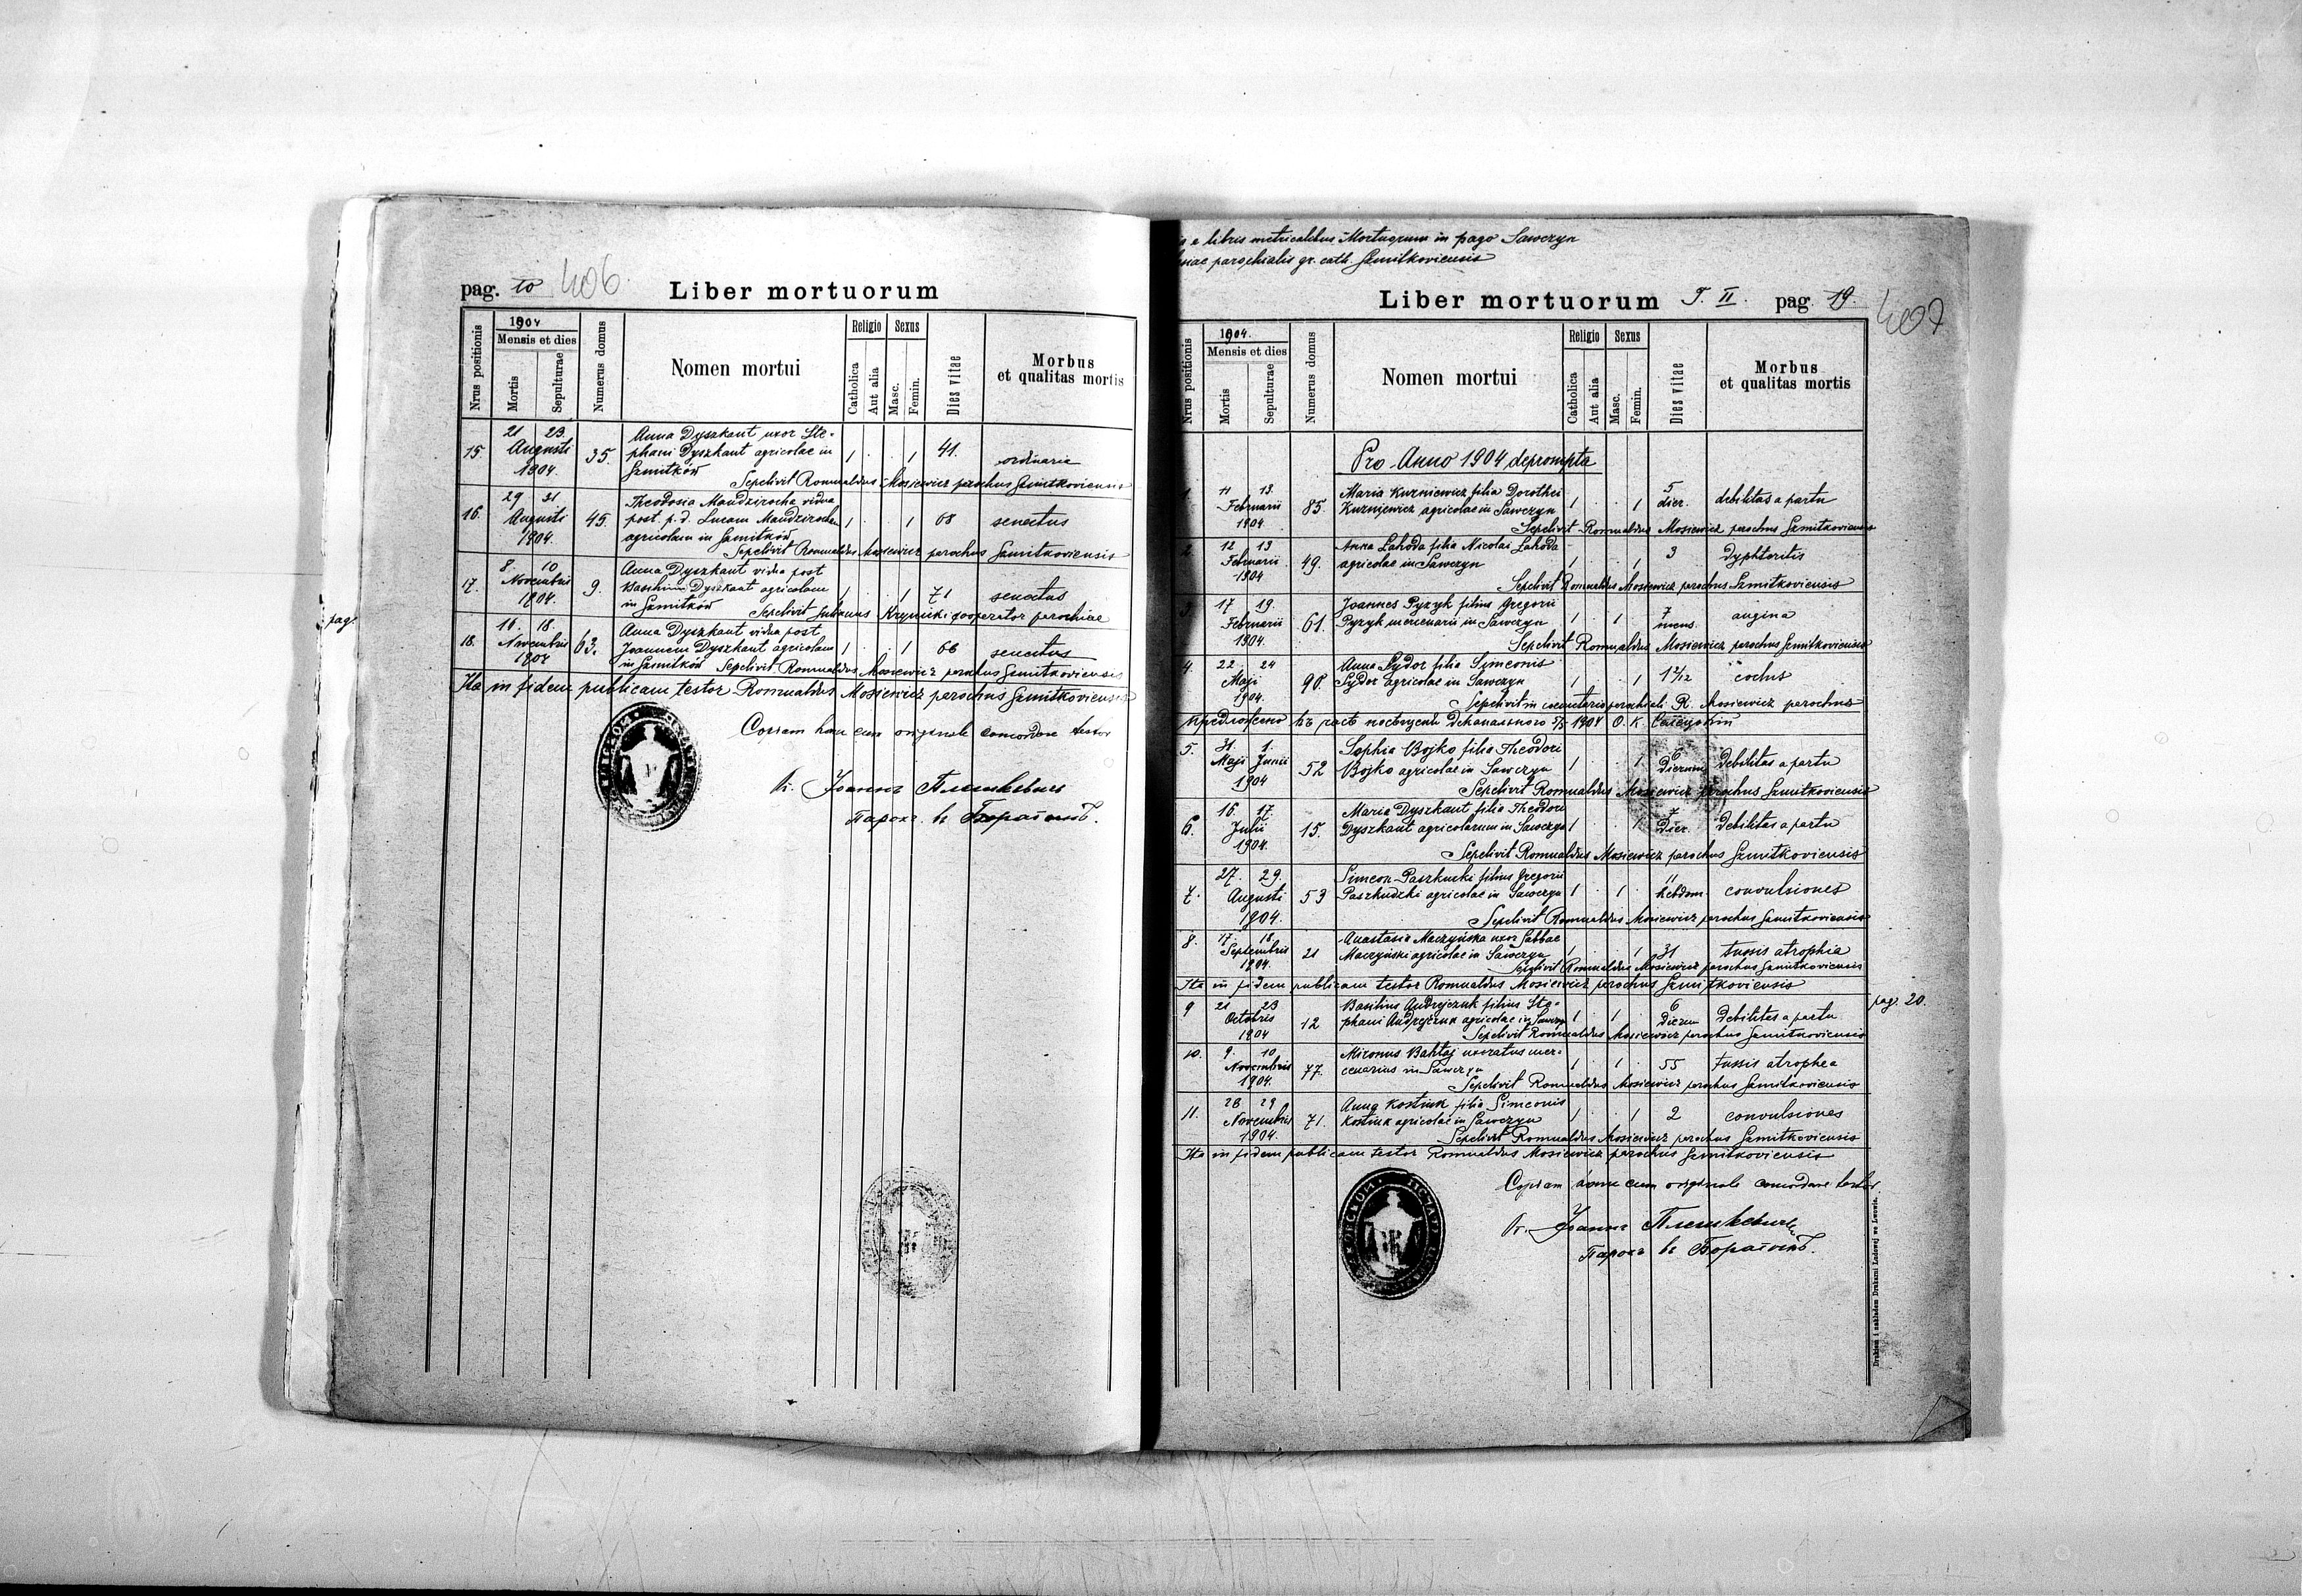 pag. 10 406.
Liber mortuorum
Nrus positionis
1904
Mensis et dies
Mortis
Sepulturae
Numerus domus
Nomen mortui
Religio
Catholica
Aut alia
Sexus
Masc.
Femin.
Dies vitae
Morbus
et qualitas mortis
15. 21 23. Augusti 1904. 35.
Anna Dyszkant uxor Ste-
phani Dyszkant agricolae in
Szmitków
1 . . 1 41. ordinaria
Sepelivit Romualdus Mosiewicz parochus Szmitkoviensis
16. 29 31 Augusti 1904. 45.
Theodosia Mandzirocha vidua
post p. d. Lucam Mandzirocha
agricolam in Szmitków
1 . . 1 68 senectus
Sepelivit Romualdus Mosiewicz parochus Szmitkoviensis
17. 8. 10 Novembris 1904. 9.
Anna Dyszkant vidua post
Basilium Dyszkant agricolam
in Szmitków
1 . . 1 71 senectus
Sepelivit Julianus Krynicki cooperator parochiae
18. 16. 18. Novembris 1904 63.
Anna Dyszkant vidua post
Joannem Dyszkant agricolam
in Szmitków
1 . . 1 66 senectus
Sepelivit Romualdus Mosiewicz parochus Szmitkoviensis
Ita in fidem publicam testor Romualdus Mosiewicz parochus Szmitkoviensis
Copiam hanc cum originale concordare testor
Парохъ въ
pag.
e libris metricalibus Mortuorum in pago Sawczyn
parochialis gr. cath. Szmitkoviensis
Liber mortuorum T. II. pag. 19.
407
Nrus positionis
1904.
Mensis et dies
Mortis
Sepulturae
Numerus domus
Nomen mortui
Religio
Catholica
Aut alia
Sexus
Masc.
Femin.
Dies vitae
Morbus
et qualitas mortis
Pro Anno 1904 deprompta
1. 11 13. Februarii 1904 85.
Maria Kuzniewicz filia Dorothei
Kuzniewicz agricolae in Sawczyn
1 . . 1 5 dier. debilitas a partu
Sepelivit Romualdus Mosiewicz parochus Szmitkoviensis
2. 12 13 Februarii 1904 49.
Anna Lahoda filia Nicolai Lahoda
agricolae in Sawczyn
1 . . 1 3 dyphteritis
Sepelivit Romualdus Mosiewicz parochus Szmitkoviensis
3 17 19. Februarii 1904. 61.
Joannes Pyzyk filius Gregorii
Pyzyk mercenarii in Sawczyn
1 . 1 . 7 mens. angina
Sepelivit Romualdus Mosiewicz parochus Szmitkoviensis
4. 22 24 Maji 1904. 98.
Anna Sydor filia Simeonis
Sydor agricolae in Sawczyn
1 . . 1 1 2/12
Sepelivit in coemeterio parochiali R. Mosiewicz parochus
предложено въ часѣ 1904
5. 31. 1. Maji Junii 1904 52
Sophia Bojko filia Theodori
Bojko agricolae in Sawczyn
1 . . 1 6 dierum debilitas a partu
Sepelivit Romualdus Mosiewicz parochus Szmitkoviensis
6. 16 17. Julii 1904. 15.
Maria Dyszkant filia Theodori
Dyszkant agricolarum in Sawczyn
1 . . 1 7 dier. debilitas a partu
Sepelivit Romualdus Mosiewicz parochus Szmitkoviensis
7. 27. 29. Augusti 1904. 53
Simeon Paszkudzki filius Gregorii
Paszkudzki agricolae in Sawczyn
1 . 1 . 11 hebdom. convulsiones
Sepelivit Romualdus Mosiewicz parochus Szmitkoviensis
8. 17. 18. Septembris 1904. 21
Anastasia Maczyńska uxor Sabbae
Maczyński agricolae in Sawczyn
1 . . 1 31 tussis atrophia
Sepelivit Romualdus Mosiewicz parochus Szmitkoviensis
Ita in fidem publicam testor Romualdus Mosiewicz parochus Szmitkoviensis
pag. 20.
9 21 23 Octobris 1904 12
Basilius Andrejczuk filius Ste-
phani Andrejczuk agricolae in Sawczyn
1 . 1 . 6 dierum debilitas a partu
Sepelivit Romualdus Mosiewicz parochus Szmitkoviensis
10. 9. 10 Novembris 1904. 77.
Mironus Bahtaj uxoratus mer-
cenarius in Sawczyn
1 . 1 . 55 tussis atrophea
Sepelivit Romualdus Mosiewicz parochus Szmitkoviensis
11. 28 29 Novembris 1904. 71.
Anna Kostiuk filia Simeonis
Kostiuk agricolae in Sawczyn
1 . . 1 2 convulsiones
Sepelivit Romualdus Mosiewicz parochus Szmitkoviensis
Ita in fidem publicam testor Romualdus Mosiewicz parochus Szmitkoviensis
Copiam hanc cum originale concordare testor
Парохъ въ
Drukiem i nakładem Drukarni Ludowej we Lwowie.